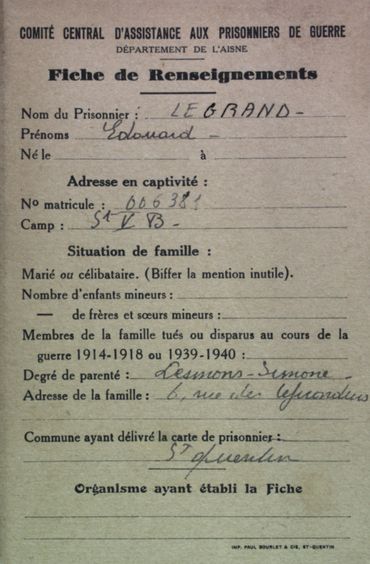 COMITÉ CENTRAL D'ASSISTANCE AUX PRISONNIERS DE GUERRE
DÉPARTEMENT DE L'AISNE
Fiche de Renseignements
Nom du Prisonnier : LEGRAND -
Prénoms Edouard -
Né le à
Adresse en captivité :
No matricule : 006381
Camp : St V B -
Situation de famille :
Marié ou célibataire. (Biffer la mention inutile).
Nombre d'enfants mineurs :
— de frères et sœurs mineurs :
Membres de la famille tués ou disparus au cours de la
guerre 1914-1918 ou 1939-1940 :
Degré de parenté : Lesmons-Simone -
Adresse de la famille : 6, rue des
Commune ayant délivré la carte de prisonnier :
St Quentin
Organisme ayant établi la Fiche
IMP. PAUL BOURLET & CIE, ST-QUENTIN